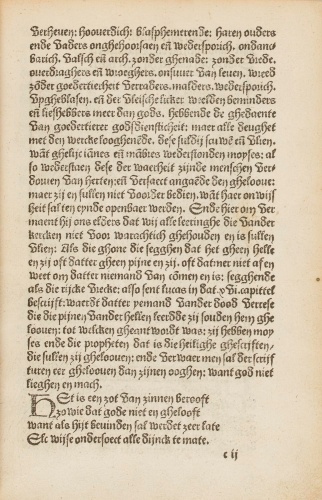 Verheven: hooverdich: blasphemerende: haren ouders
ende Vaders onghehoorsaem eñ wedersporich. ondanc-
barich. Valsch eñ arch. zonder ghenade: zonder Vrede.
overdraghers eñ wroeghers. onsuver Van leven. wreed
zonder goedertierheit Verraders. malders. wedersporich.
Upgheblasen. eñ der Vleischelicker weelden beminders
eñ liefhebbers meer dan gods. hebbende de ghedaente
Van goedertierer godsdiensticheit: maer alle deughet
met den wercke looghenēde. dese suldij scuwē eñ Vlien.
wāt ghelijc iānes eñ mābres wederstonden moyses: al
so wederstaen dese der waerheit zijnde menschen Ver-
dorven Van herten: eñ Versaect angaēde den gheloove:
maer zij en sullen niet Voorder bedien. wāt haer onwijs
heit sal ten eynde openbaer werden. Ende hier om Ver
maent hij ons elders dat wij alle leeringhe die Vander
kercken niet Voor warachtich ghehouden en is sullen
Vlien: Als die ghone die segghen dat het gheen helle
en zij oft datter gheen pijne en zij. oft dat men niet af en
weet om datter niemand Van cōmen en is: segghende
als die rijcke Vrecke: also sent lucas in dat .xvi. capittel
bescrijft: waerdt datter yemand Vander dood Verrese
die die pijnen Vander hellen leerdde zij souden hem ghe
looven: tot welcken gheantwordt was: zij hebben moy
ses ende die propheten dat is die heilighe ghescriften,
die sullen zij ghelooven: ende Verwaer men sal der scrif
turen eer ghelooven dan zijnen ooghen: want god niet
lieghen en mach.
Het is een zot Van zinnen berooft
zo wie dat gode niet en ghelooft
want als hijt bevinden sal werdet zeer late
Elc wijse ondersoect alle dijnck te mate.
c ij